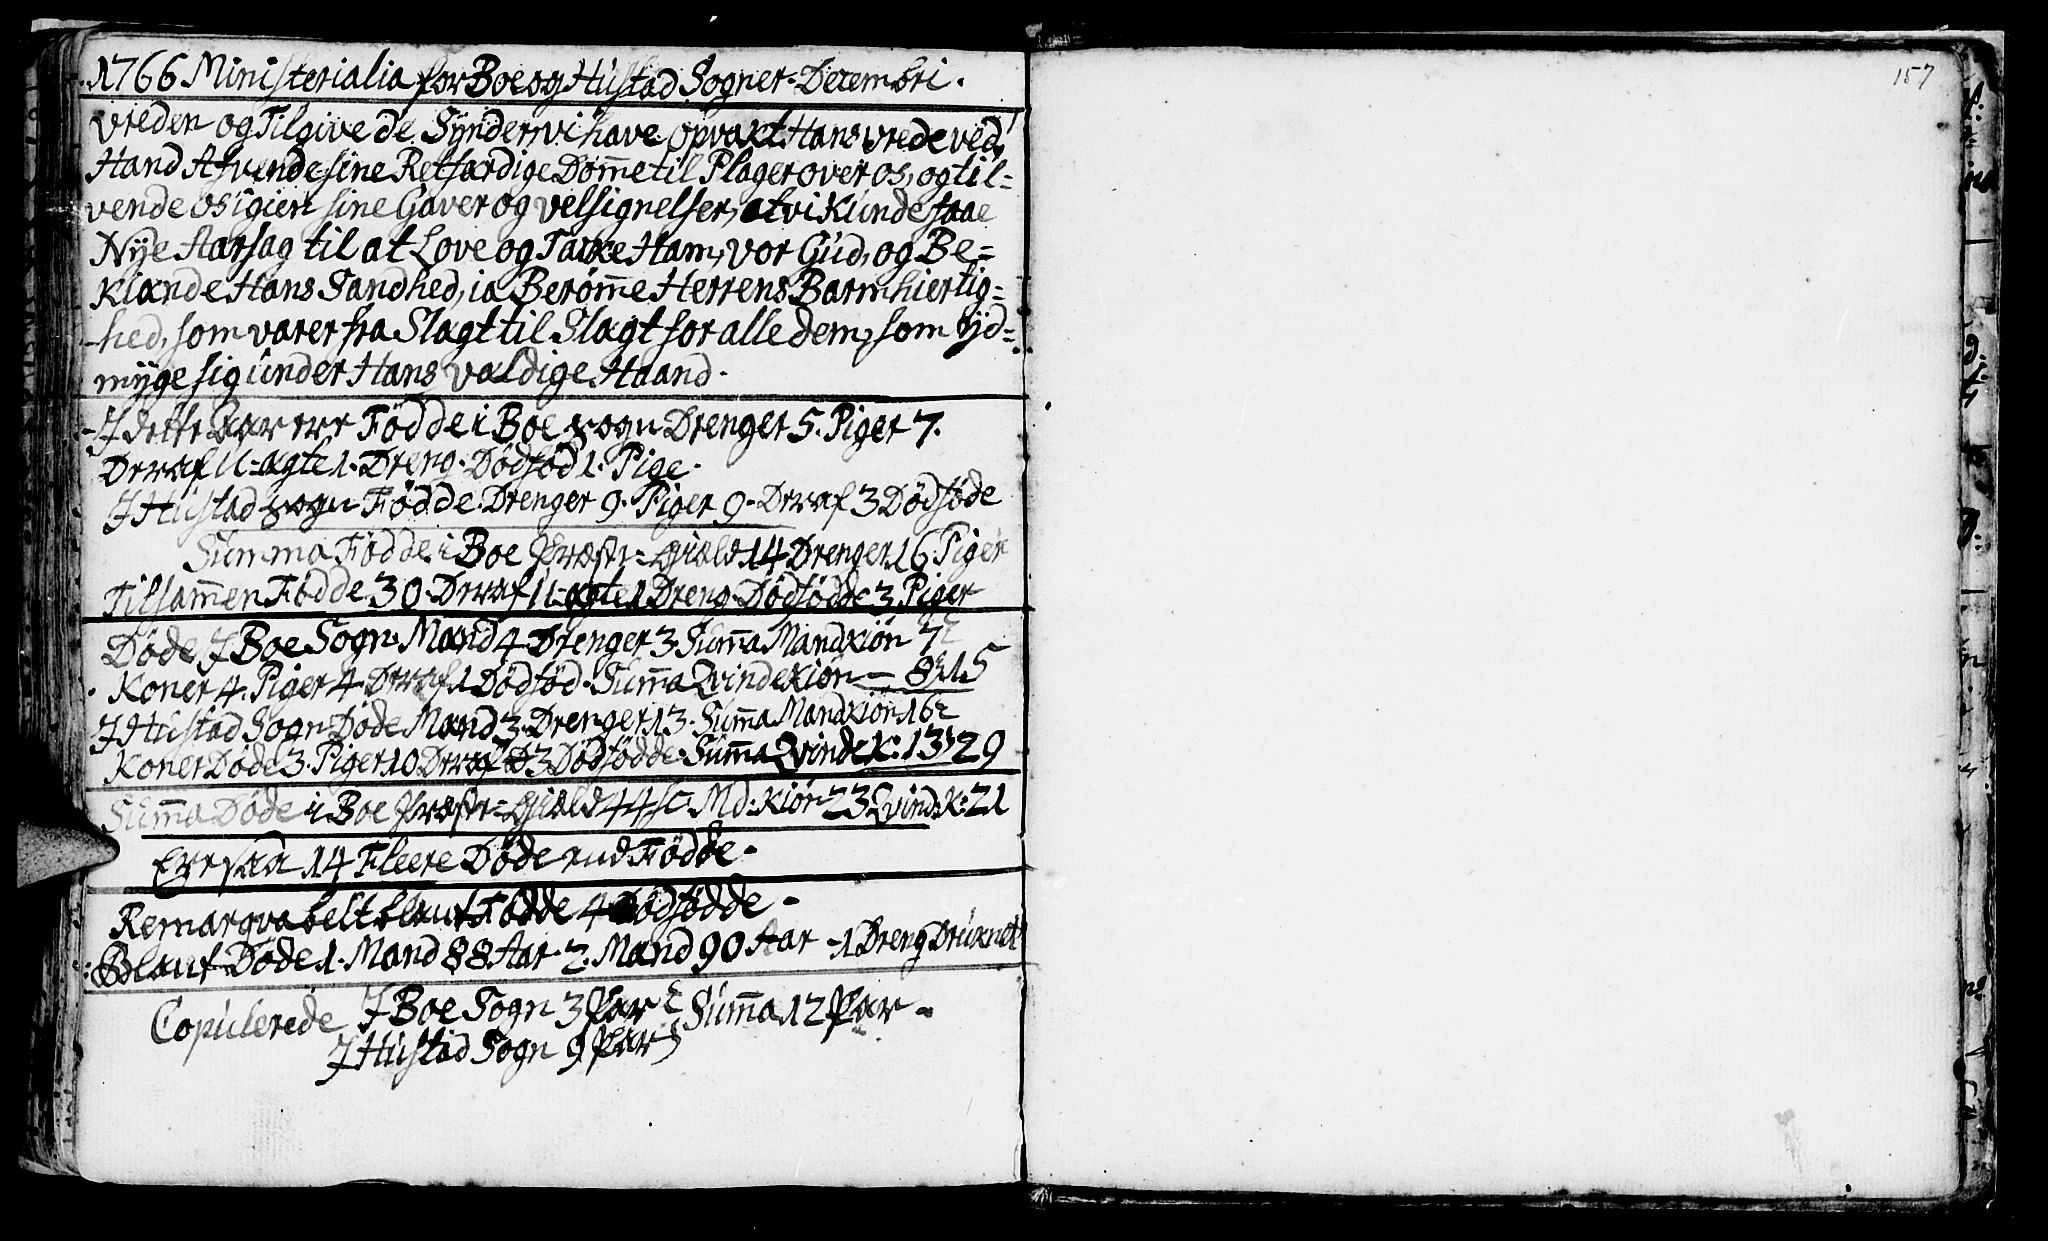 1766 Ministerialia for Boe og Hùstad Sogner. Decembri.
vreden og Tilgive de Sÿnder vi have opvakt Hans vrede ved,
Hand Afvende sine Retfærdige Dom̄e til Plager over os, og til=
vende os igien sine Gaver og velsignelser, at vi Kùnde faae
Nÿe Aarsag til at Love og Takke Ham, vor Gùd, og Be=
Kiænde Hans Sandhed, ia Berøm̄e Herrens Barmhiertig=
hed, som varer fra Slægt til Slægt for alle dem, som ÿd=
mÿge sig ùnder Hans Vældige Haand.
J dette Aar ere Fødde i Boe Sogn Drenger 5. Piger 7.
Deraf U-ægte 1. Dreng. Dødfød 1. Pige.
J Hùstad Sogn Fødde Drenger 9. Piger 9. Deraf 3 Dødføde
Sùmma Fødde i Boe Præste=Gield 14 Drenger 16 Piger
Tilsam̄en Fødde 30. Deraf U-ægte 1 Dreng Dødfødde 3 Piger
Døde J Boe Sogn. Mænd 4 Drenger 3. Sùm̄a Mandkiøn 7
Koner 4. Piger 4. Deraf 1 Dødfød. Sùm̄a Qvindekiøn — 8 15
J Hùstad Sogn Døde Mænd 3. Drenger 13. Sùm̄a Mandkiøn 16
Koner Døde 3. Piger 10 Deraf 3 Dødfødde. Sùm̄a Qvinde K: 13 29
Sùm̄a Døde i Boe Præste=Gield 44 sc Md: Kiøn 23 Qvind: K: 21
Er saa 14 Fleere Døde end Fødde.
Remarqvabelt blant Fødde 4 Dødfødde.
Blant Døde 1. Mand 88 Aar. 2. Mand 90 Aar - 1 Dreng Drùknet
Copùlerede J Boe Sogn 3 Par Sùm̄a 12 Par.
J Hùstad Sogn 9 Par
157